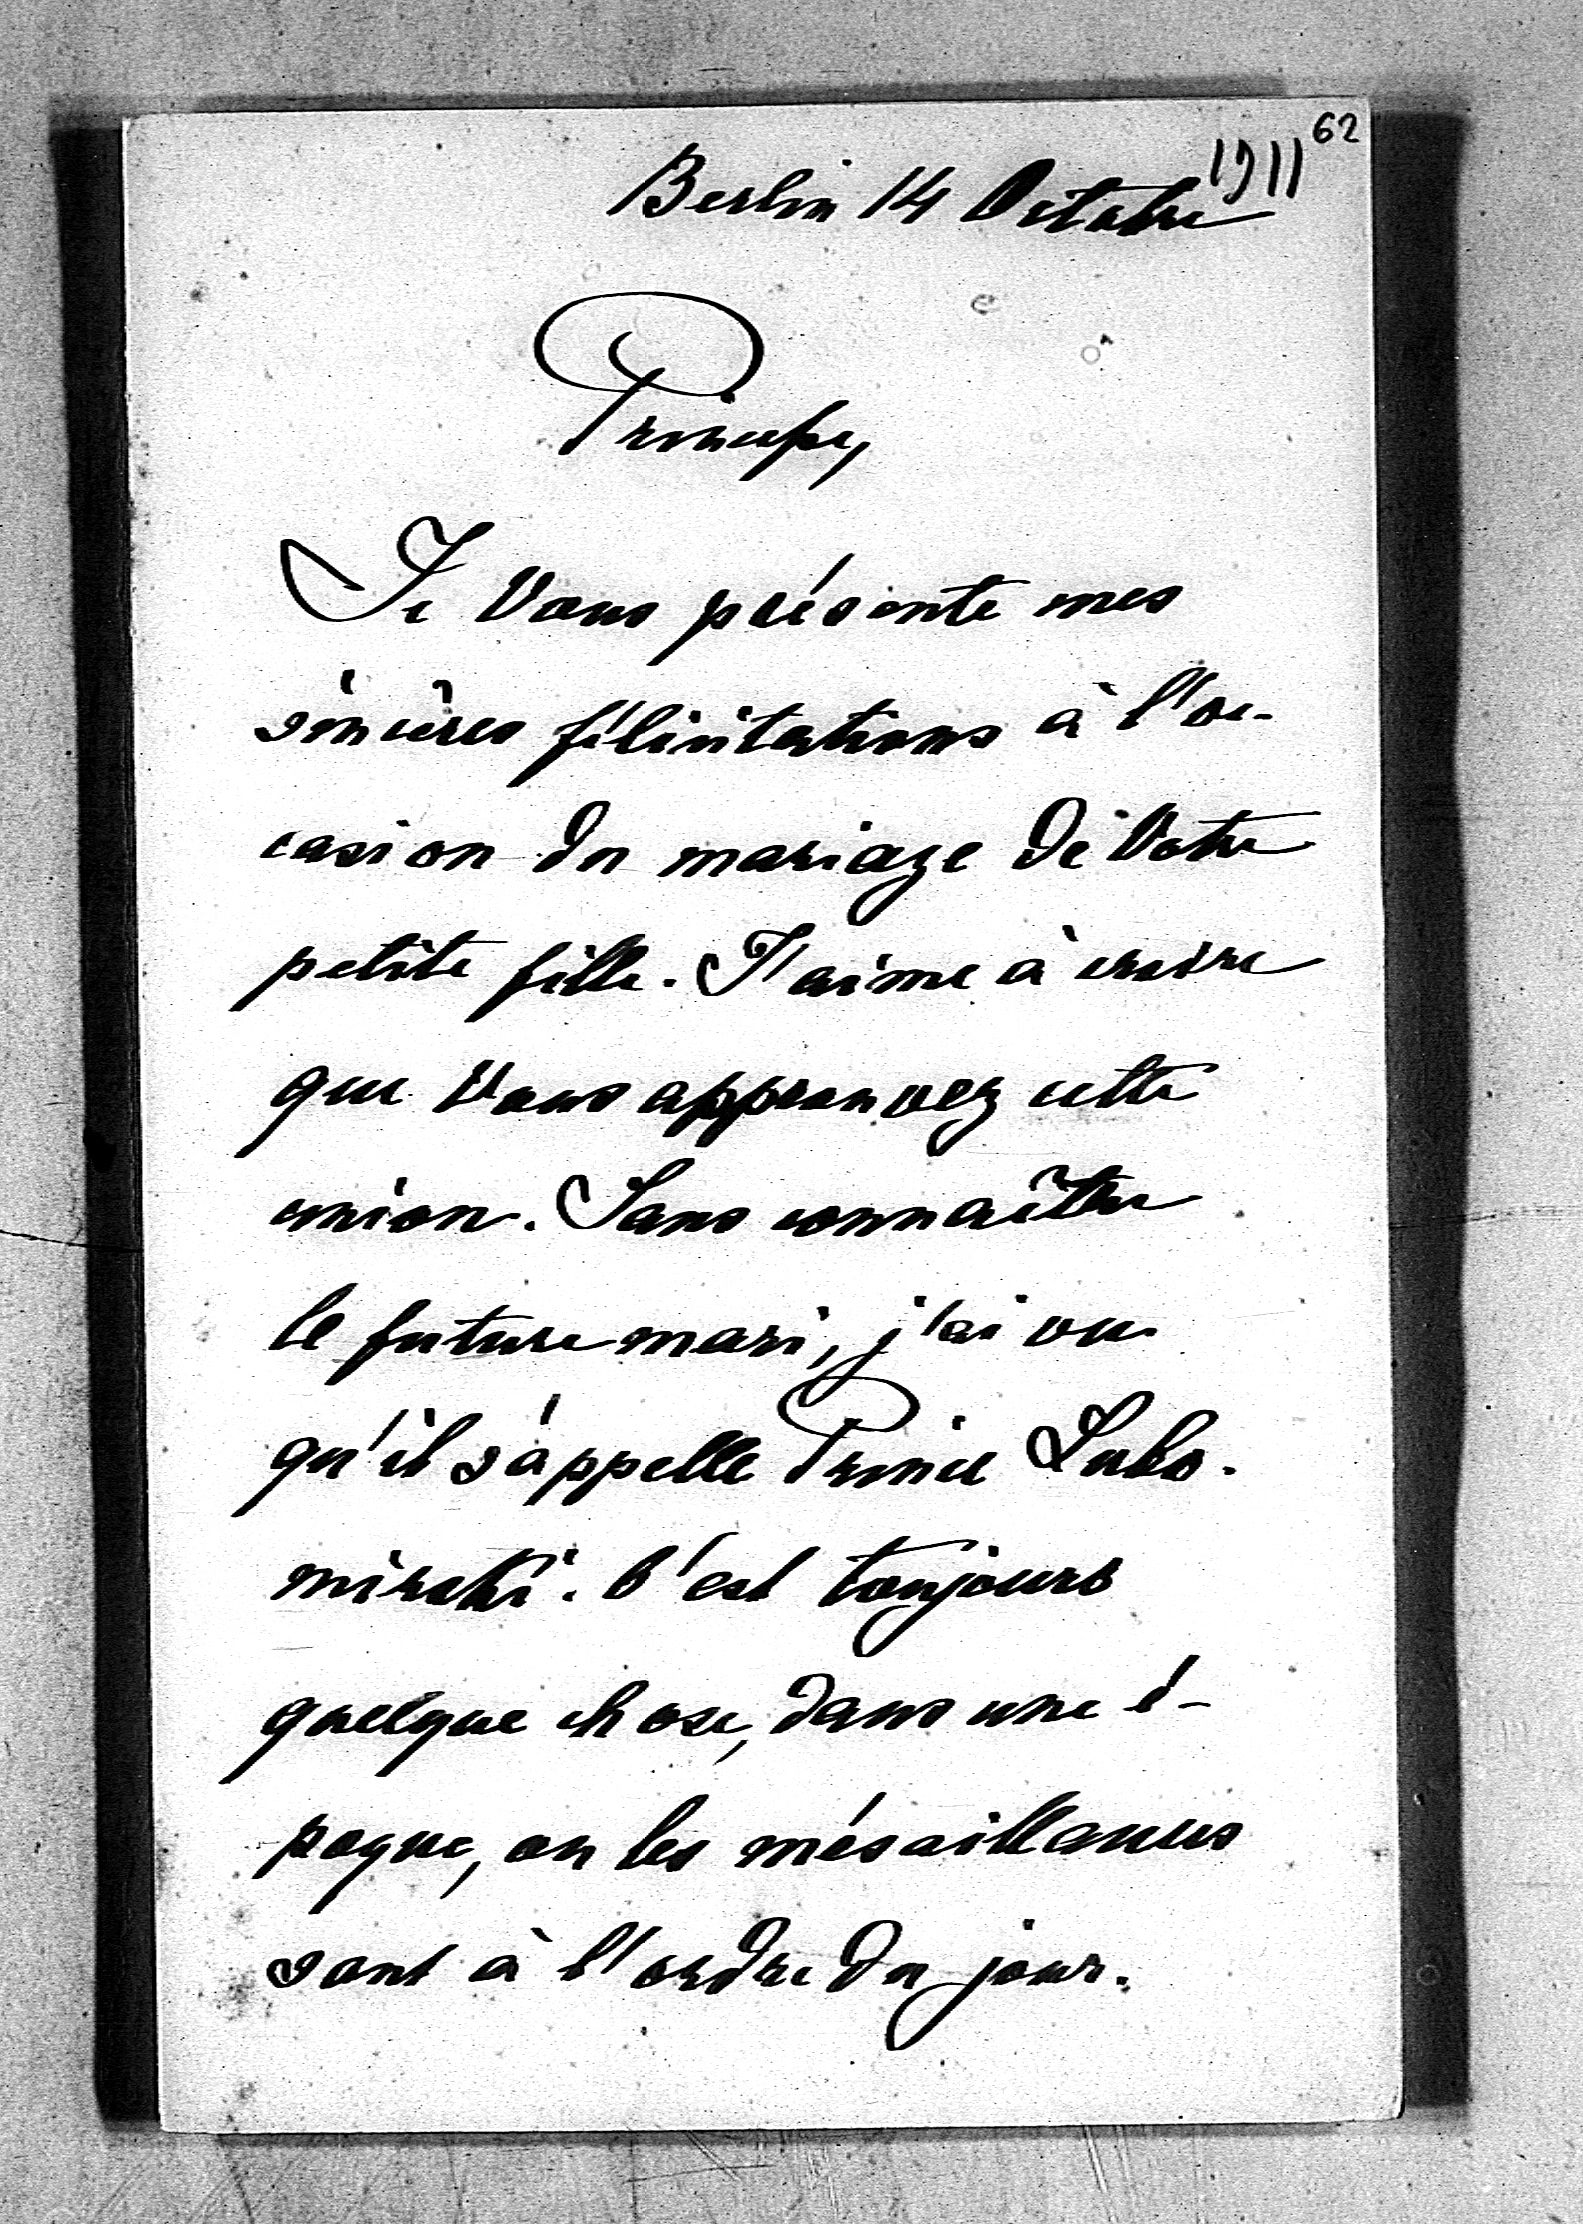 62
1911
Berlin 14 Octobre
Principe,
Je Vous présente mes
sincères félicitations à l'oc-
casion du mariage de Votre
petite fille. J'aime à croire
que Vous approuvez cette
union. Sans connaître
le future mari, j'ai vu
qu'il s'appelle Prince Lubo-
mirski. C'est toujours
quelque chose, dans une é-
poque, ou les mésaillances
sont à l'ordre du jour.